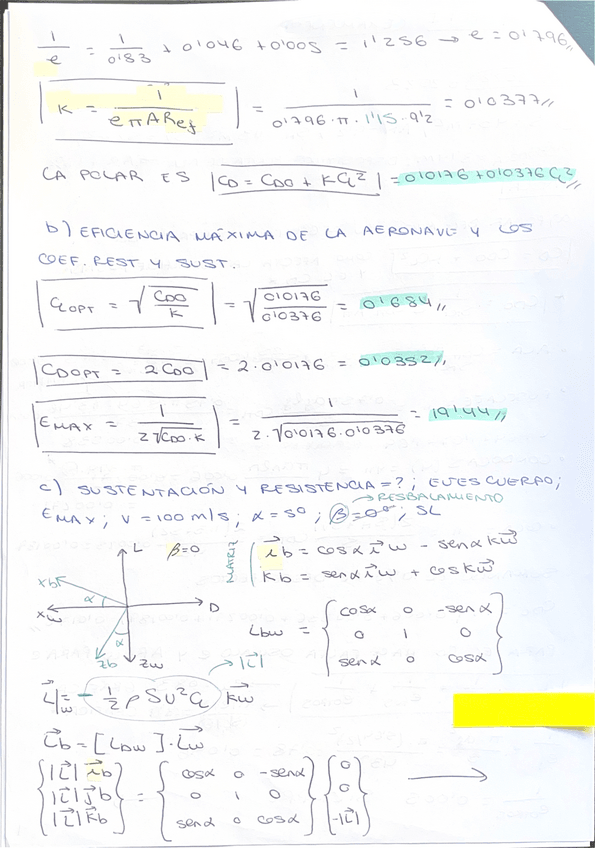 1/e = 1/0'83 + 0'046 + 0'005 = 1'256 → e = 0'796,,
K = 1/(e π ARef) = 1/(0'796 · π · 1'15 · 9'2) = 0'0377,,
LA POLAR ES CD = CD0 + KCL² = 0'0176 + 0'0376 CL²,,
b) EFICIENCIA MÁXIMA DE LA AERONAVE Y LOS
COEF. REST Y SUST.
CLOPT = √(CD0/K) = √(0'0176/0'0376) = 0'684,,
CDOPT = 2CD0 = 2 · 0'0176 = 0'0352,,
EMAX = 1/(2√(CD0·K)) = 1/(2·√(0'0176·0'0376)) = 19'44,,
c) SUSTENTACIÓN Y RESISTENCIA = ? ; EJES CUERPO;
→ RESBALAMIENTO
EMAX ; V = 100 m/s ; α = 5º ; β = 0º ; SL
L β=0
MATRIZ
i⃗b = cosα i⃗w - senα k⃗w
k⃗b = senα i⃗w + cosk⃗w
xb α
xw D
α
zb zw
Lbw = { cosα 0 -senα
0 1 0
senα 0 cosα }
→ |L⃗|
L⃗|w = - 1/2 ρSU²CL k⃗w
L⃗b = [Lbw] · L⃗w
{ |L⃗| i⃗b } = { cosα 0 -senα } { 0 }
{ |L⃗| j⃗b } = { 0 1 0 } { 0 } →
{ |L⃗| k⃗b } = { senα 0 cosα } { -|L⃗| }